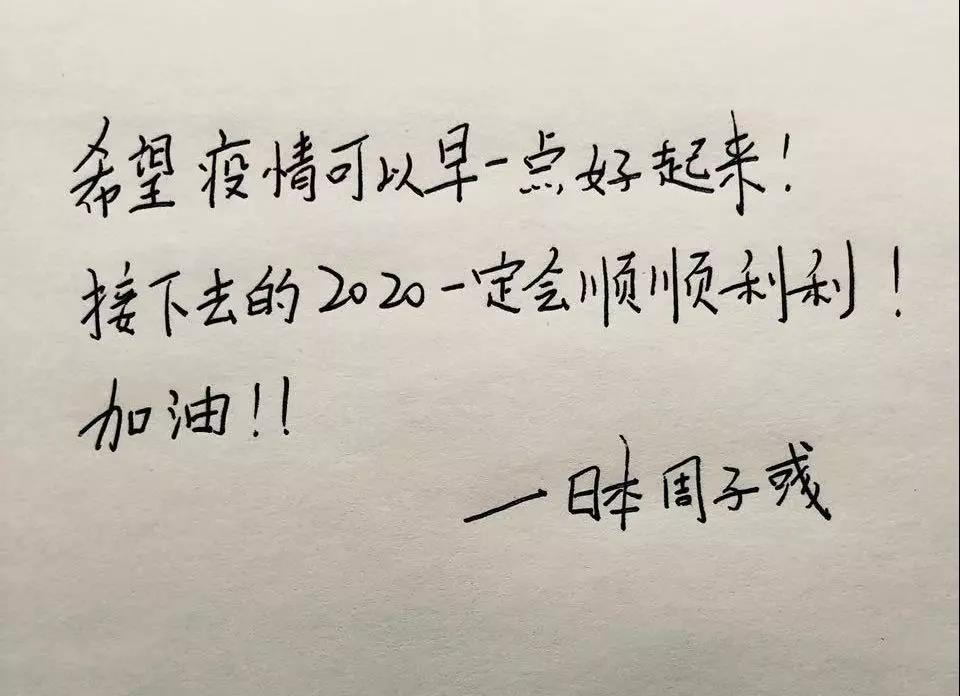 希望疫情可以早一点好起来！
接下去的2020一定会顺顺利利！
加油！！
—日本 周子彧